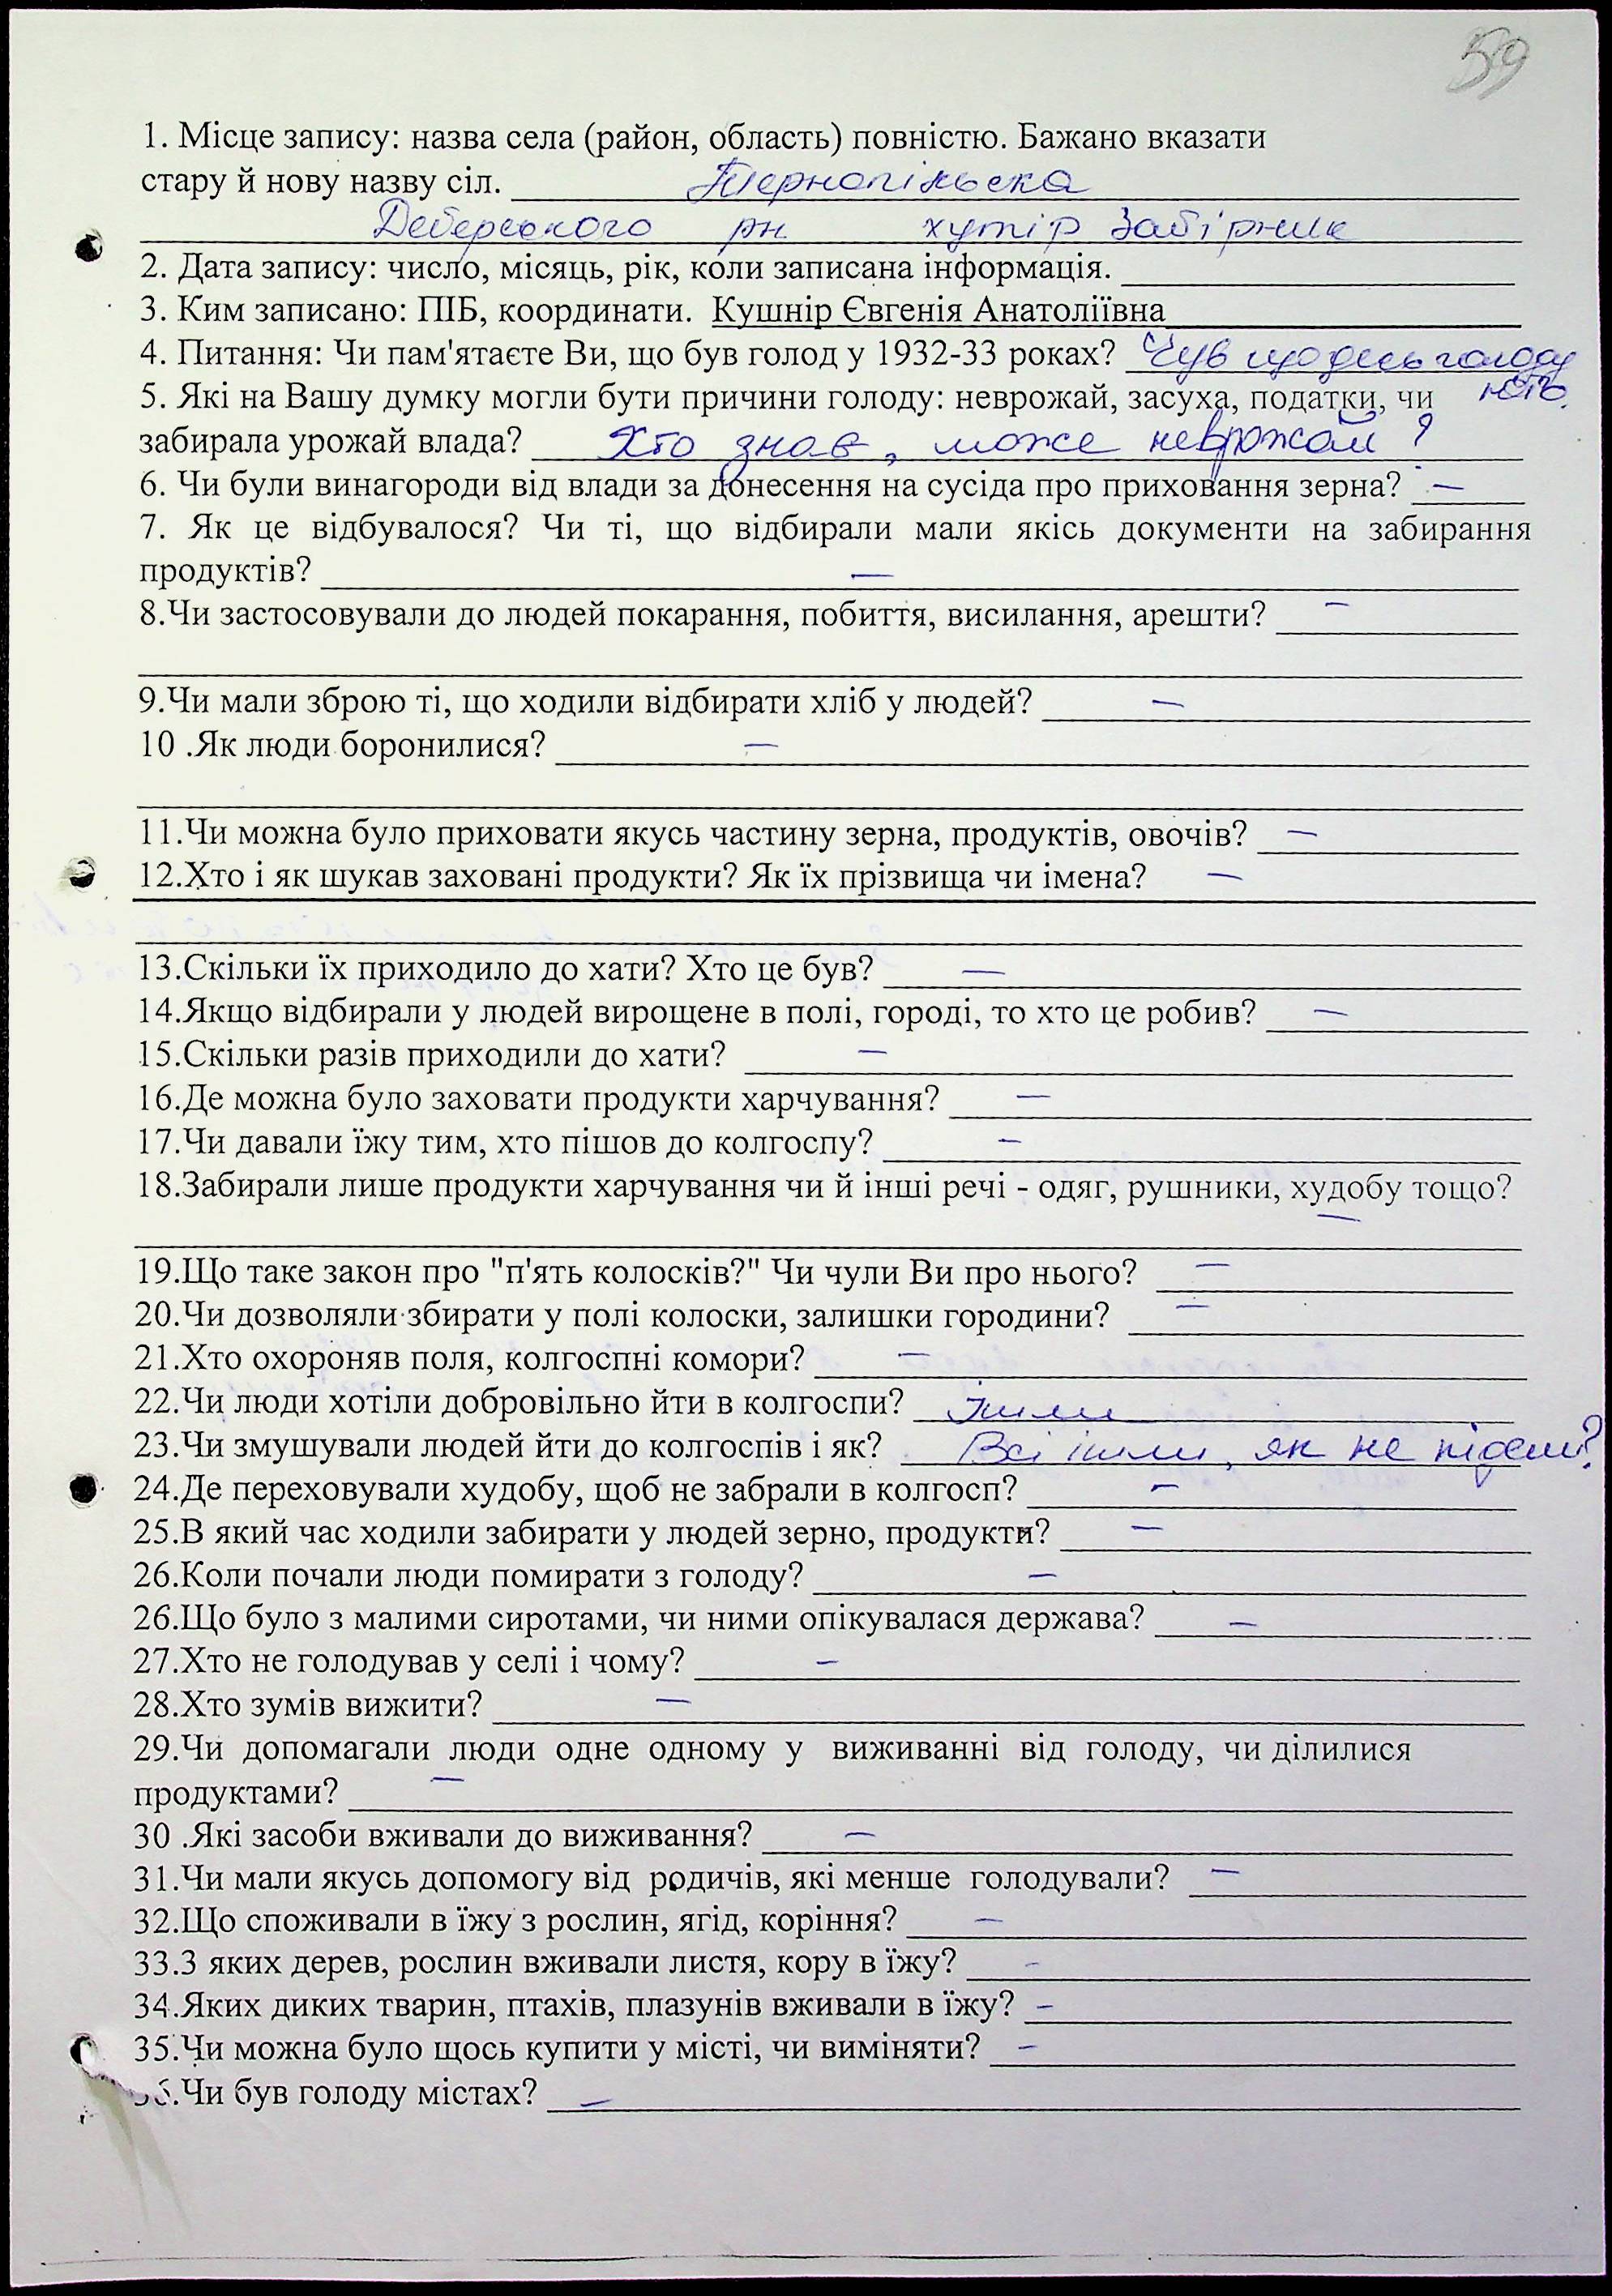 59
1. Місце запису: назва села (район, область) повністю. Бажано вказати
стару й нову назву сіл. Тернопільска
рн хутір Забірник
2. Дата запису: число, місяць, рік, коли записана інформація.
3. Ким записано: ПІБ, координати. Кушнір Євгенія Анатоліївна
4. Питання: Чи пам'ятаєте Ви, що був голод у 1932-33 роках? Чув що десь голоду
5. Які на Вашу думку могли бути причини голоду: неврожай, засуха, податки, чи ють.
забирала урожай влада? Хто знав, може неврожай ?
6. Чи були винагороди від влади за донесення на сусіда про приховання зерна? –
7. Як це відбувалося? Чи ті, що відбирали мали якісь документи на забирання
продуктів? –
8.Чи застосовували до людей покарання, побиття, висилання, арешти? –
9.Чи мали зброю ті, що ходили відбирати хліб у людей? –
10 .Як люди боронилися? –
11.Чи можна було приховати якусь частину зерна, продуктів, овочів? –
12.Хто і як шукав заховані продукти? Як їх прізвища чи імена? –
13.Скільки їх приходило до хати? Хто це був? –
14.Якщо відбирали у людей вирощене в полі, городі, то хто це робив? –
15.Скільки разів приходили до хати? –
16.Де можна було заховати продукти харчування? –
17.Чи давали їжу тим, хто пішов до колгоспу? –
18.Забирали лише продукти харчування чи й інші речі - одяг, рушники, худобу тощо?
–
19.Що таке закон про "п'ять колосків?" Чи чули Ви про нього? –
20.Чи дозволяли збирати у полі колоски, залишки городини? –
21.Хто охороняв поля, колгоспні комори? –
22.Чи люди хотіли добровільно йти в колгоспи? Ішли
23.Чи змушували людей йти до колгоспів і як? Всі ішли, як не підеш?
24.Де переховували худобу, щоб не забрали в колгосп? –
25.В який час ходили забирати у людей зерно, продукти? –
26.Коли почали люди помирати з голоду? –
26.Що було з малими сиротами, чи ними опікувалася держава? –
27.Хто не голодував у селі і чому? –
28.Хто зумів вижити? –
29.Чи допомагали люди одне одному у виживанні від голоду, чи ділилися
продуктами? –
30 .Які засоби вживали до виживання? –
31.Чи мали якусь допомогу від родичів, які менше голодували? –
32.Що споживали в їжу з рослин, ягід, коріння? –
33.З яких дерев, рослин вживали листя, кору в їжу? –
34.Яких диких тварин, птахів, плазунів вживали в їжу? –
35.Чи можна було щось купити у місті, чи виміняти? –
36.Чи був голоду містах? –